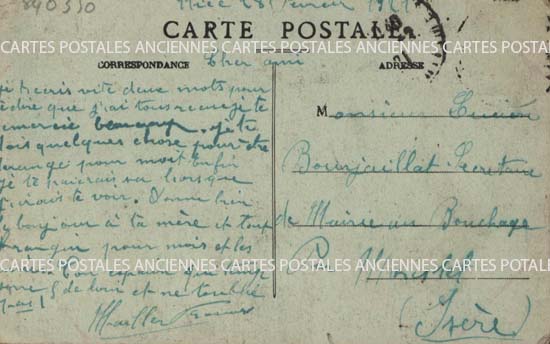 840350
Nice 28 Février
CARTE POSTALE
CARTES POSTALES ANCIENNES CARTES POSTALES ANCIENNES CARTES POSTALES ANCIENNES
CORRESPONDANCE
Cher ami
ADRESSE
je t'écris vite deux mots pour
te dire que j'ai tous reçu je te
remercie beaucoup. je te
dois quelques chose pour
pour moi enfin
je te paierais sa lorsque
j'irais te voir. Donne bien
le bonjour à ta mère et
pour mois et les
CARTES POSTALES ANCIENNES CARTES POSTALES ANCIENNES CARTES POSTALES
de loin et ne t'oublie
pas !
Monsieur Lucien
Bourjaillat Secretaire
de Mairie au Bouchage
Par Morestel
(Isère)